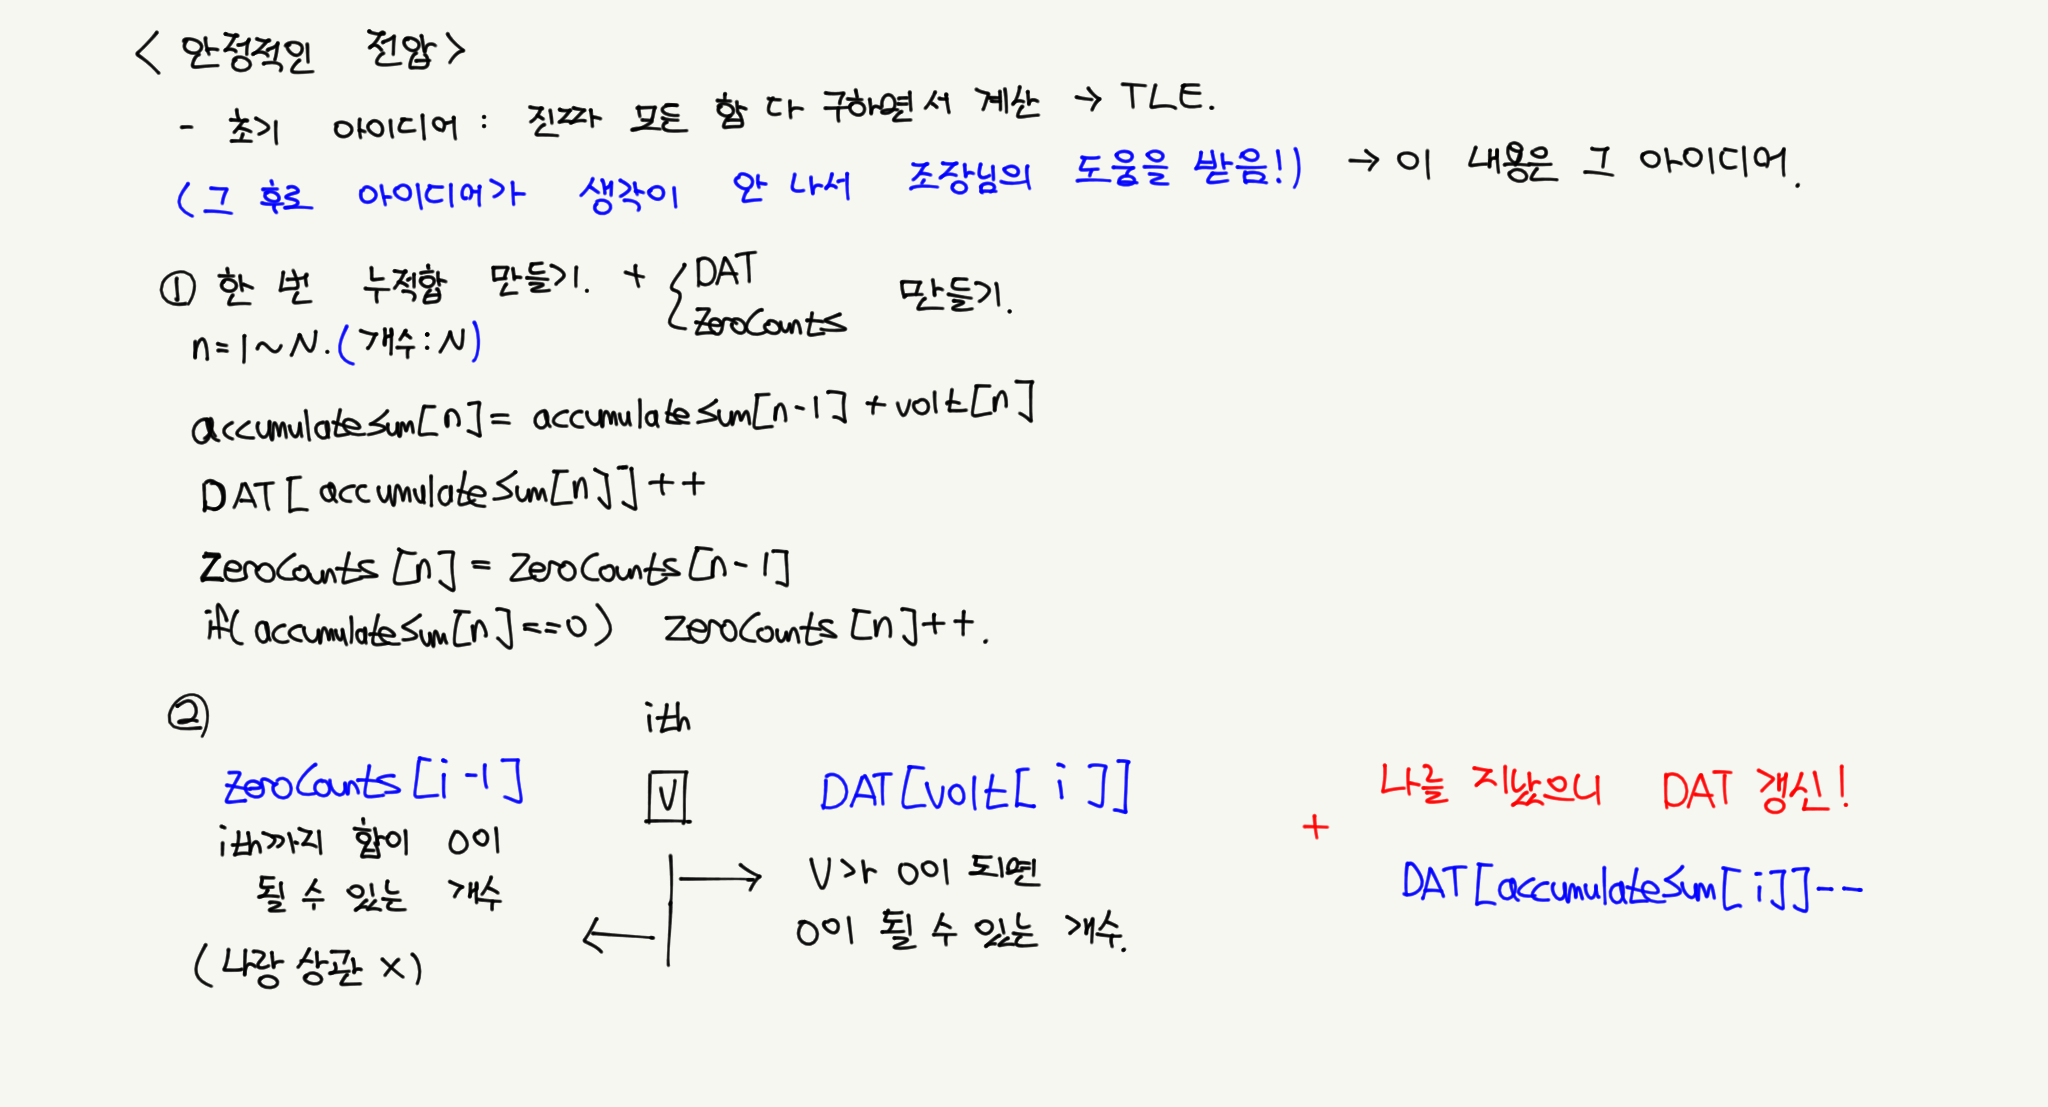 < 안정적인 전압>
- 초기 아이디어 : 진짜 모든 합 다 구하면서 계산 → TLE.
(그 후로 아이디어가 생각이 안 나서 조장님의 도움을 받음!) → 이 내용은 그 아이디어.
① 한 번 누적합 만들기. + { DAT ZeroCounts 만들기.
n=1~N. (개수:N)
accumulateSum[n]= accumulateSum[n-1] + volt[n]
DAT[accumulateSum[n]]++
ZeroCounts [n] = ZeroCounts[n-1]
if(accumulateSum[n]==0) ZeroCounts [n]++.
②
ith
ZeroCounts[i-1]
ith까지 합이 0이
될 수 있는 개수
(나랑 상관 X)
V
DAT[volt[i]]
V가 0이 되면
0이 될 수 있는 개수.
+
나를 지났으니 DAT 갱신!
DAT[accumulateSum[i]]--